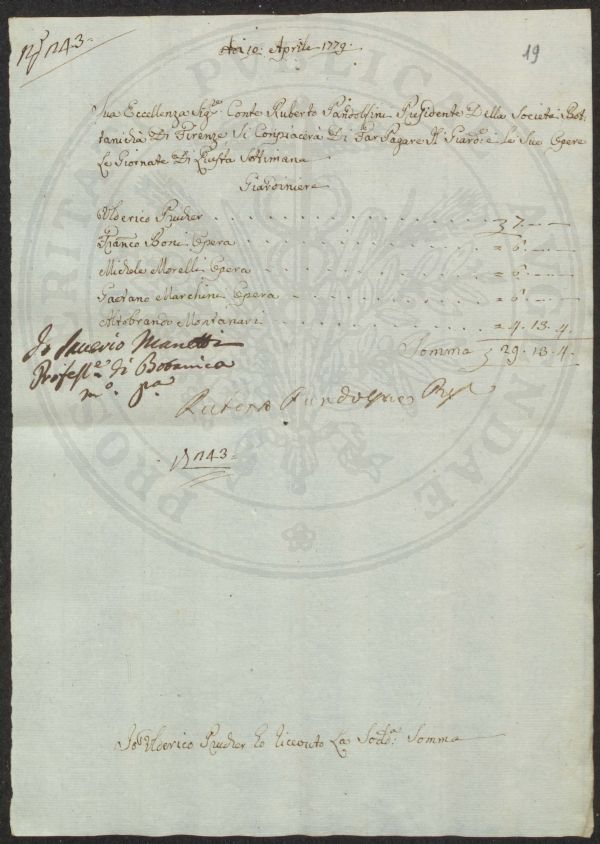 N° 43
19
Adi 10: Aprile 1779.
Sua Eccellenza Sig:re Conte Ruberto Pandolfini Presidente Della Società Bot:
tanicha Di Firenze Si Conpiacerà Di Far Pagare Il Giard:e e Le Sue Opere
Le Giornate Di Questa Settimana
Giardiniere
Ulderico Prucher . . . . . . . . . . . . 7. — —
Franco Boni Opera . . . . . . . . . . = 6. — —
Michele Morelli Opera . . . . . . . . = 6. — —
Gaetano Marchini Opera . . . . . . . = 6. — —
Altobrando Montanari . . . . . . . . = 4. 13. 4.
Somma 29. 13. 4.
Io Saverio Manetti
Profess:e di Botanica
m:o pa
Ruberto Pandolfini
N° 43=
Io Ulderico Prucher ho ricevuto La Sodd:a Somma
PROSPERITATI PUBLICAE AUGENDAE